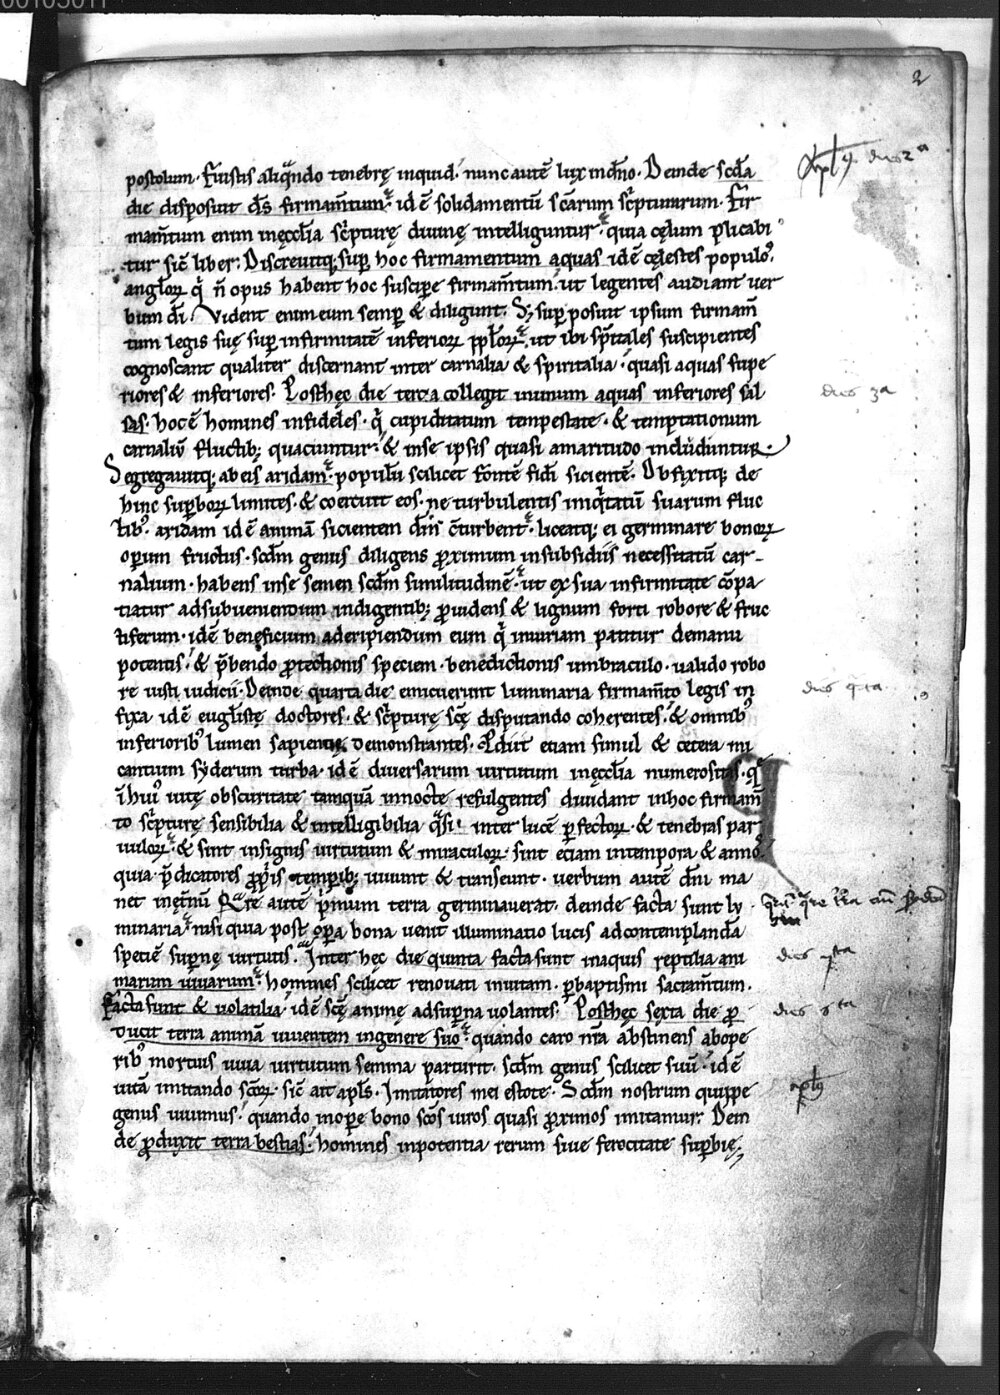 2
postolum. Fuistis aliq̃ndo tenebrę inquid. nunc autē lux in dño. Deinde scđa
die disposuit d̄s firmam̄tum. id ē solidamentū sc̄arum sc̃pturarum. Fir
mam̄tum enim in ęccl̄ia sc̃pturę divinę intelliguntur. quia cęlum plicabi
tur sic̄ liber. Discrevitq; sup hoc firmamentum aquas id ē cęlestes populoꝰ
angl̄oꝝ q̃ n̄ opus habent hoc suscipe firmam̄tum. ut legentes audiant ver
bum dī. Vident enim eum semp & diligunt. S; sup posuit ipsum firmam̄
tum legis suę sup infirmitatē inferioꝝ ppl̄oꝝ. ut ibi sp̄itales suscipientes
cognoscant qualiter discernant inter carnalia & spiritalia. quasi aquas supe
riores & inferiores. Post hęc die tercia collegit in unum aquas inferiores sal
sas. hoc ē homines infideles. q̃ cupiditatum tempestate. & temptationum
carnaliū fluctib; quaciuntur. & in se ipsis quasi amaritudo includuntur.
Segregavitq; ab eis aridam. populū scilicet fontē fidi sicientē. Obfixitq; de
hinc supboꝝ limites. & coercuit eos. ne turbulentis iniq̃tatū suarum fluc
tibꝰ. aridam id ē animā sicientem dñ̄ c̄turbent. liceatq; ei germinare bonoꝝ
opum fructus. scdm̄ genus diligens proximum in subsidiis necessitatū car-
nalium. habens in se semen scdm̄ similitudinē. ut ex sua infirmitate c̄opa
tiatur ad subveniendum indigentib; providens & lignum forti robore & fruc
tiferum. id ē beneficium ad eripiendum eum q̃ iniuriam patitur de manu
potentis. & p̄bendo protectionis speciem. benedictionis umbraculo. valido robo
re iusti iudicii. Deinde quarta die emicuerunt luminaria firmam̄to legis in
fixa id ē eugl̄istę doctores. & sc̃pturę sc̄ę disputando coherentes. & omnibꝰ
inferioribꝰ lumen sapientię demonstrantes. Pdiit etiam simul & cetera mi
cantium syderum turba. id ē diversarum virtutum in ęccl̄ia numerositas. q̃
in huiꝰ vitę obscuritate tamquā in nocte refulgentes dividant in hoc firmam̄
to sc̃pturę sensibilia & intelligibilia q̃si inter lucē pfectoꝝ. & tenebras par
vuloꝝ. & sint in signis virtutum & miraculoꝝ. sint etiam in tempora & annoꝰ
quia p̄dicatores propis tempib; vivunt & transeunt. verbum autē dn̄i ma
net in ęt̄nū Q̃re autē p̄mum terra germinaverat. deinde facta sunt lu
minaria. nisi quia post opa bona venit illuminatio lucis ad contemplandā
speciē supnę virtutis. Inter hęc die quinta facta sunt in aquis reptilia ani
marum vivarum. homines scilicet renovati in vitam. p baptismi sacram̄tum.
Facta sunt & volatilia. id ē sc̄ę animę ad supna volantes. Post hęc sexta die pro
ducit terra animā viventem in genere suo. quando caro n̄ra abstinens ab ope
ribꝰ mortuis viva virtutum semina parturit. scdm̄ genus scilicet suū. id ē
vitā imitando sc̄oꝝ. sic̄ ait apl̄s. Imitatores mei estote. Scdm̄ nostrum quippe
genus vivimus. quando in ope bono sc̄os viros quasi proximos imitamur. Dein
de produxit terra bestias. homines in potentia rerum sive ferocitate supbię.
apl̄9 dies 2a
dies 3a
dies q̃rta
dies 5ta
dies 6ta
apl̄9